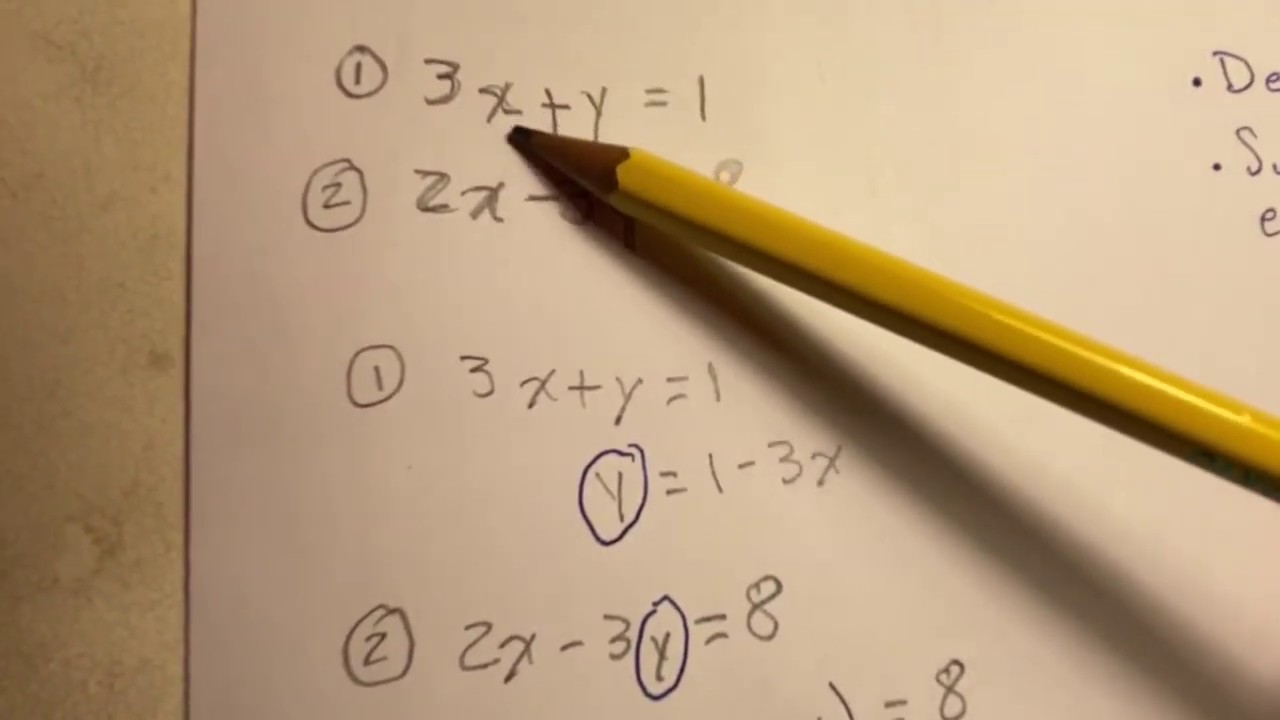 ① 3x+y=1
② 2x-3 8
① 3x+y=1
y=1-3x
② 2x-3y=8
)=8
• De
• Su
e